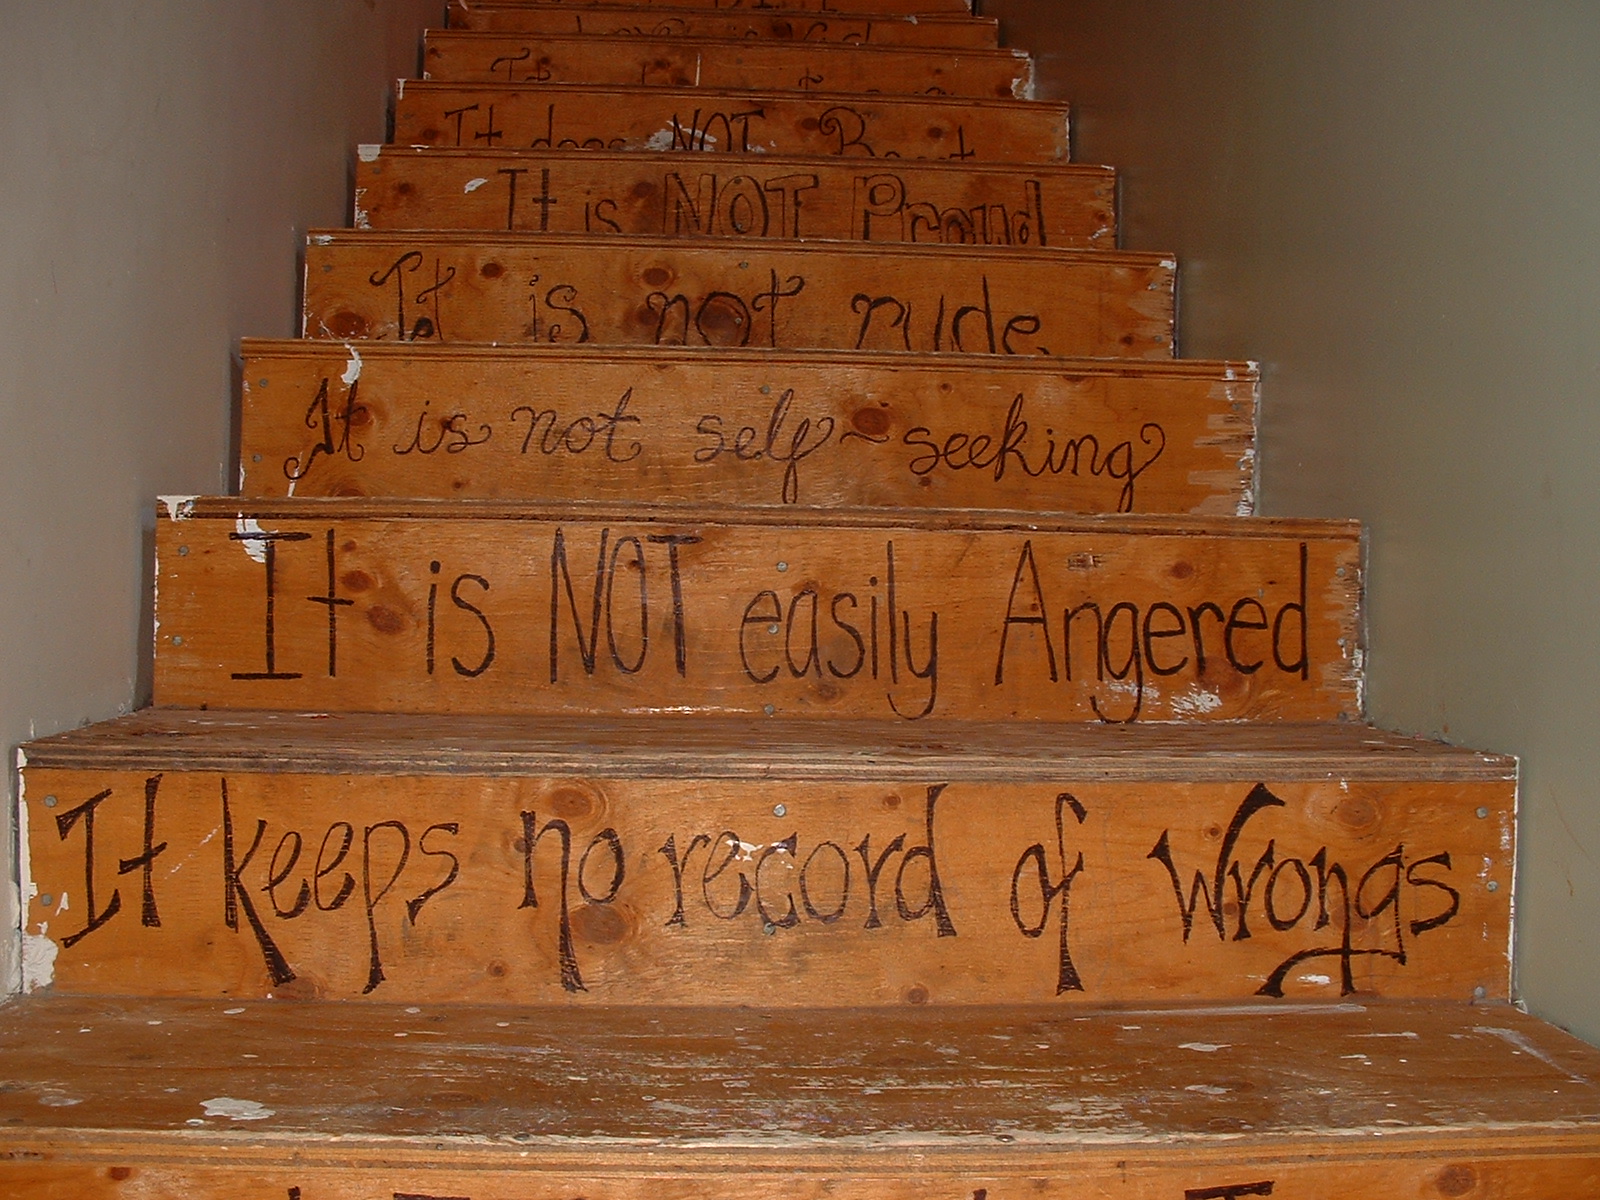 It does NOT Boast
It is NOT Proud
It is not rude
It is not self-seeking
It is NOT easily Angered
It keeps no record of Wrongs